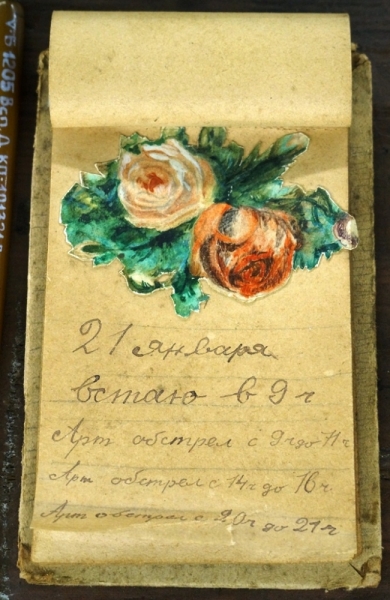 21 января
встаю в 9 ч
Арт обстрел с 9 ч до 11 ч
Арт обстрел с 14 ч до 16 ч
Арт обстрел с 20 ч до 21 ч